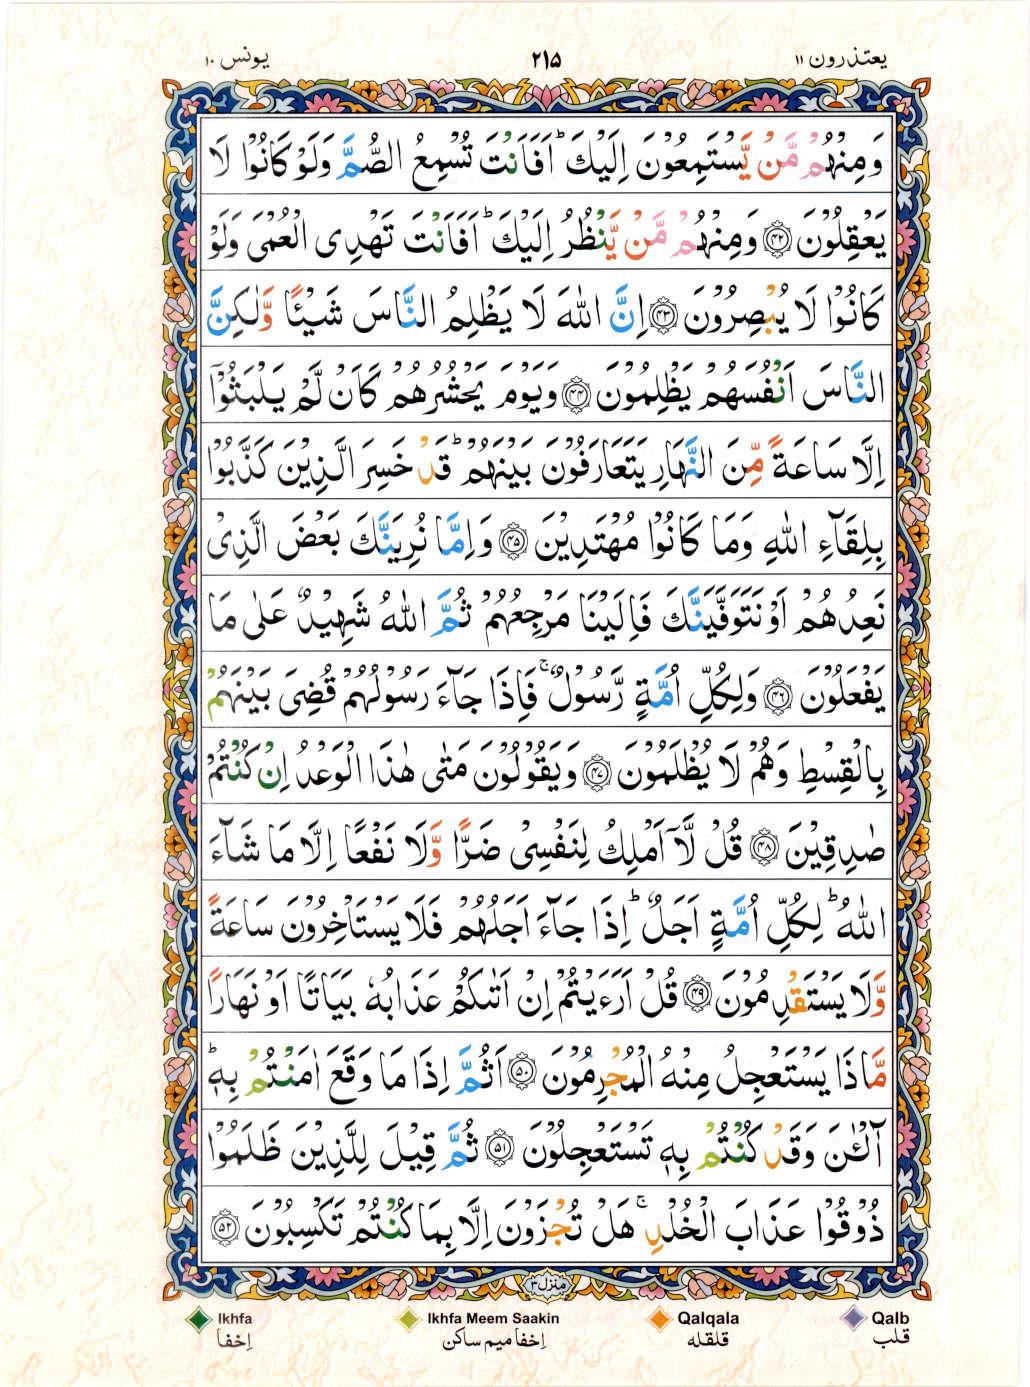 یعتذرون ۱۱
۲۱۵
یونس ۱۰
وَمِنْهُمْ مَّنْ يَّسْتَمِعُوْنَ اِلَيْكَ ؕ اَفَاَنْتَ تُسْمِعُ الصُّمَّ وَلَوْ كَانُوْا لَا
يَعْقِلُوْنَ ﴿۴۲﴾ وَمِنْهُمْ مَّنْ يَّنْظُرُ اِلَيْكَ ؕ اَفَاَنْتَ تَهْدِى الْعُمْىَ وَلَوْ
كَانُوْا لَا يُبْصِرُوْنَ ﴿۴۳﴾ اِنَّ اللّٰهَ لَا يَظْلِمُ النَّاسَ شَيْـًٔا وَّلٰكِنَّ
النَّاسَ اَنْفُسَهُمْ يَظْلِمُوْنَ ﴿۴۴﴾ وَيَوْمَ يَحْشُرُهُمْ كَاَنْ لَّمْ يَلْبَثُوْۤا
اِلَّا سَاعَةً مِّنَ النَّهَارِ يَتَعَارَفُوْنَ بَيْنَهُمْ ؕ قَدْ خَسِرَ الَّذِيْنَ كَذَّبُوْا
بِلِقَآءِ اللّٰهِ وَمَا كَانُوْا مُهْتَدِيْنَ ﴿۴۵﴾ وَاِمَّا نُرِيَنَّكَ بَعْضَ الَّذِىْ
نَعِدُهُمْ اَوْ نَتَوَفَّيَنَّكَ فَاِلَيْنَا مَرْجِعُهُمْ ثُمَّ اللّٰهُ شَهِيْدٌ عَلٰى مَا
يَفْعَلُوْنَ ﴿۴۶﴾ وَلِكُلِّ اُمَّةٍ رَّسُوْلٌ ۚ فَاِذَا جَآءَ رَسُوْلُهُمْ قُضِىَ بَيْنَهُمْ
بِالْقِسْطِ وَهُمْ لَا يُظْلَمُوْنَ ﴿۴۷﴾ وَيَقُوْلُوْنَ مَتٰى هٰذَا الْوَعْدُ اِنْ كُنْتُمْ
صٰدِقِيْنَ ﴿۴۸﴾ قُلْ لَّاۤ اَمْلِكُ لِنَفْسِىْ ضَرًّا وَّلَا نَفْعًا اِلَّا مَا شَآءَ
اللّٰهُ ؕ لِكُلِّ اُمَّةٍ اَجَلٌ ؕ اِذَا جَآءَ اَجَلُهُمْ فَلَا يَسْتَاْخِرُوْنَ سَاعَةً
وَّلَا يَسْتَقْدِمُوْنَ ﴿۴۹﴾ قُلْ اَرَءَيْتُمْ اِنْ اَتٰىكُمْ عَذَابُهٗ بَيَاتًا اَوْ نَهَارًا
مَّاذَا يَسْتَعْجِلُ مِنْهُ الْمُجْرِمُوْنَ ﴿۵۰﴾ اَثُمَّ اِذَا مَا وَقَعَ اٰمَنْتُمْ بِهٖ ؕ
آٰلْـٰٔنَ وَقَدْ كُنْتُمْ بِهٖ تَسْتَعْجِلُوْنَ ﴿۵۱﴾ ثُمَّ قِيْلَ لِلَّذِيْنَ ظَلَمُوْا
ذُوْقُوْا عَذَابَ الْخُلْدِ ۚ هَلْ تُجْزَوْنَ اِلَّا بِمَا كُنْتُمْ تَكْسِبُوْنَ ﴿۵۲﴾
منزل ۳
Ikhfa
اِخفا
Ikhfa Meem Saakin
اِخفا میم ساکن
Qalqala
قلقله
Qalb
قلب